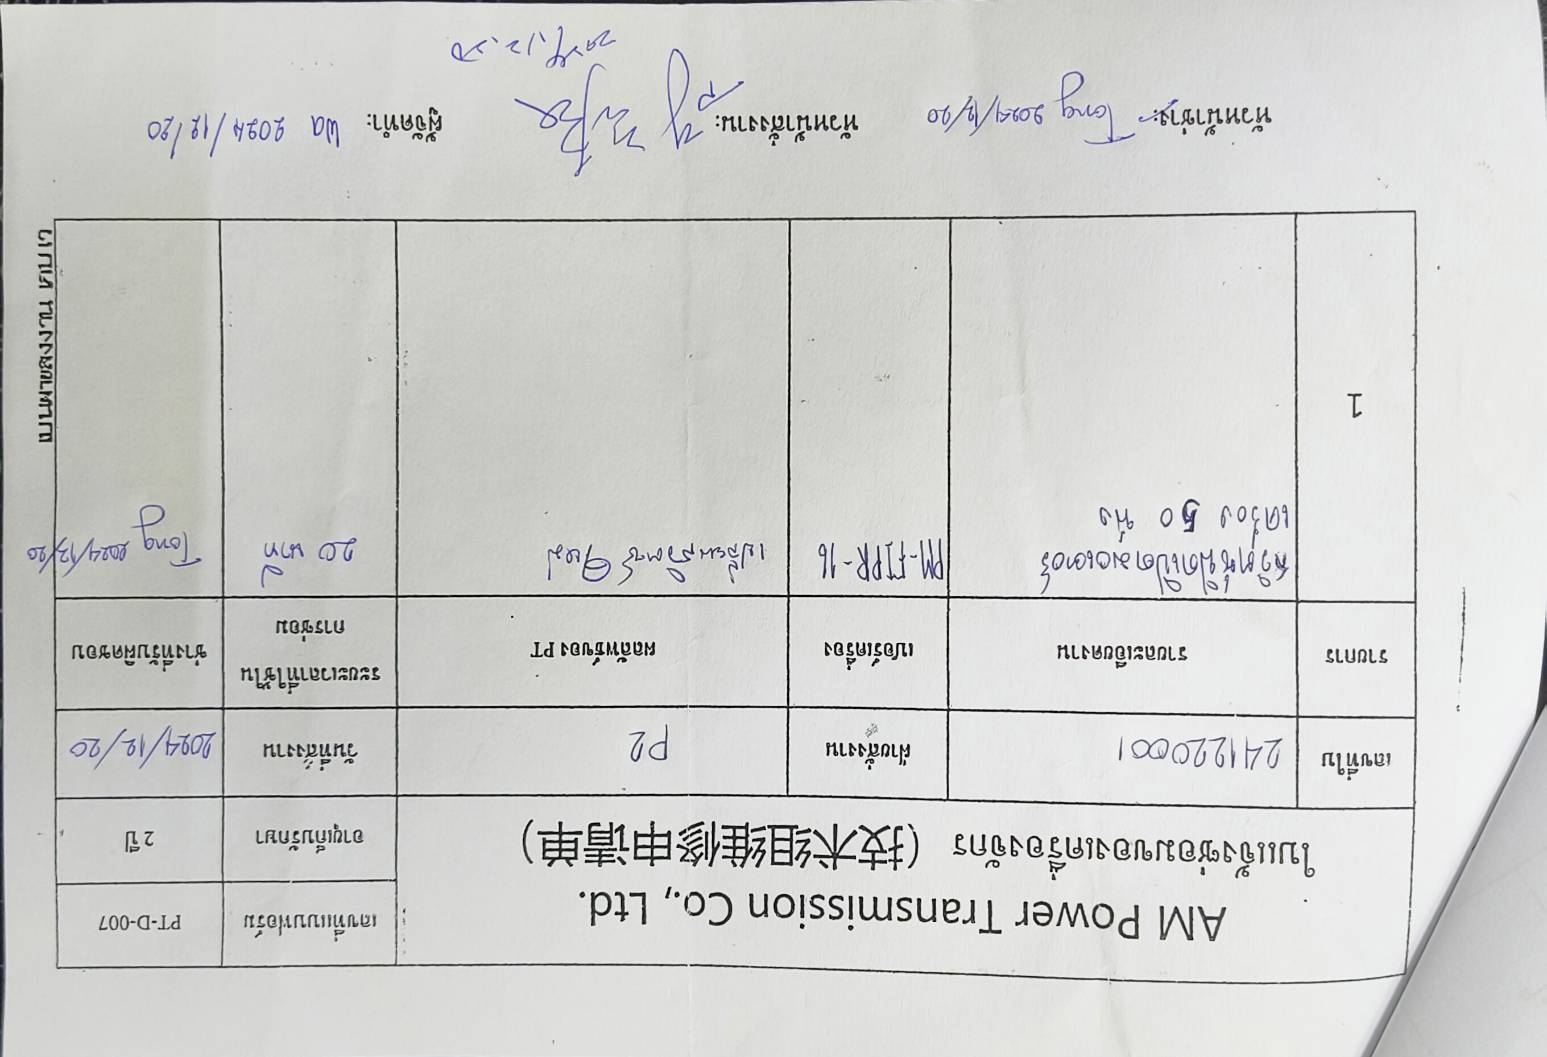 AM Power Transmission Co., Ltd.
ใบแจ้งซ่อมของเครื่องจักร (技术组维修申请单)
เลขที่แบบฟอร์ม PT-D-007
อายุเก็บรักษา 2 ปี
เลขที่ใบ 241220001 ฝ่ายสั่งงาน P2 วันที่สั่งงาน 2024/12/20
รายการ รายละเอียดงาน เบอร์เครื่อง ผลลัพธ์ของ PT ระยะเวลาที่ใช้ในการซ่อม ช่างที่รับผิดชอบ
1 สวิตซ์ปิดเปิดมอเตอร์ PM-FIPR-16 เปลี่ยนสวิตซ์ใหม่ 20 นาที Tong 2024/12/20
เครื่อง 50 พัง
หัวหน้าช่าง: Tong 2024/12/20 หัวหน้าสั่งงาน: ผู้จัดทำ: Wa 2024/12/20
2024.12.20